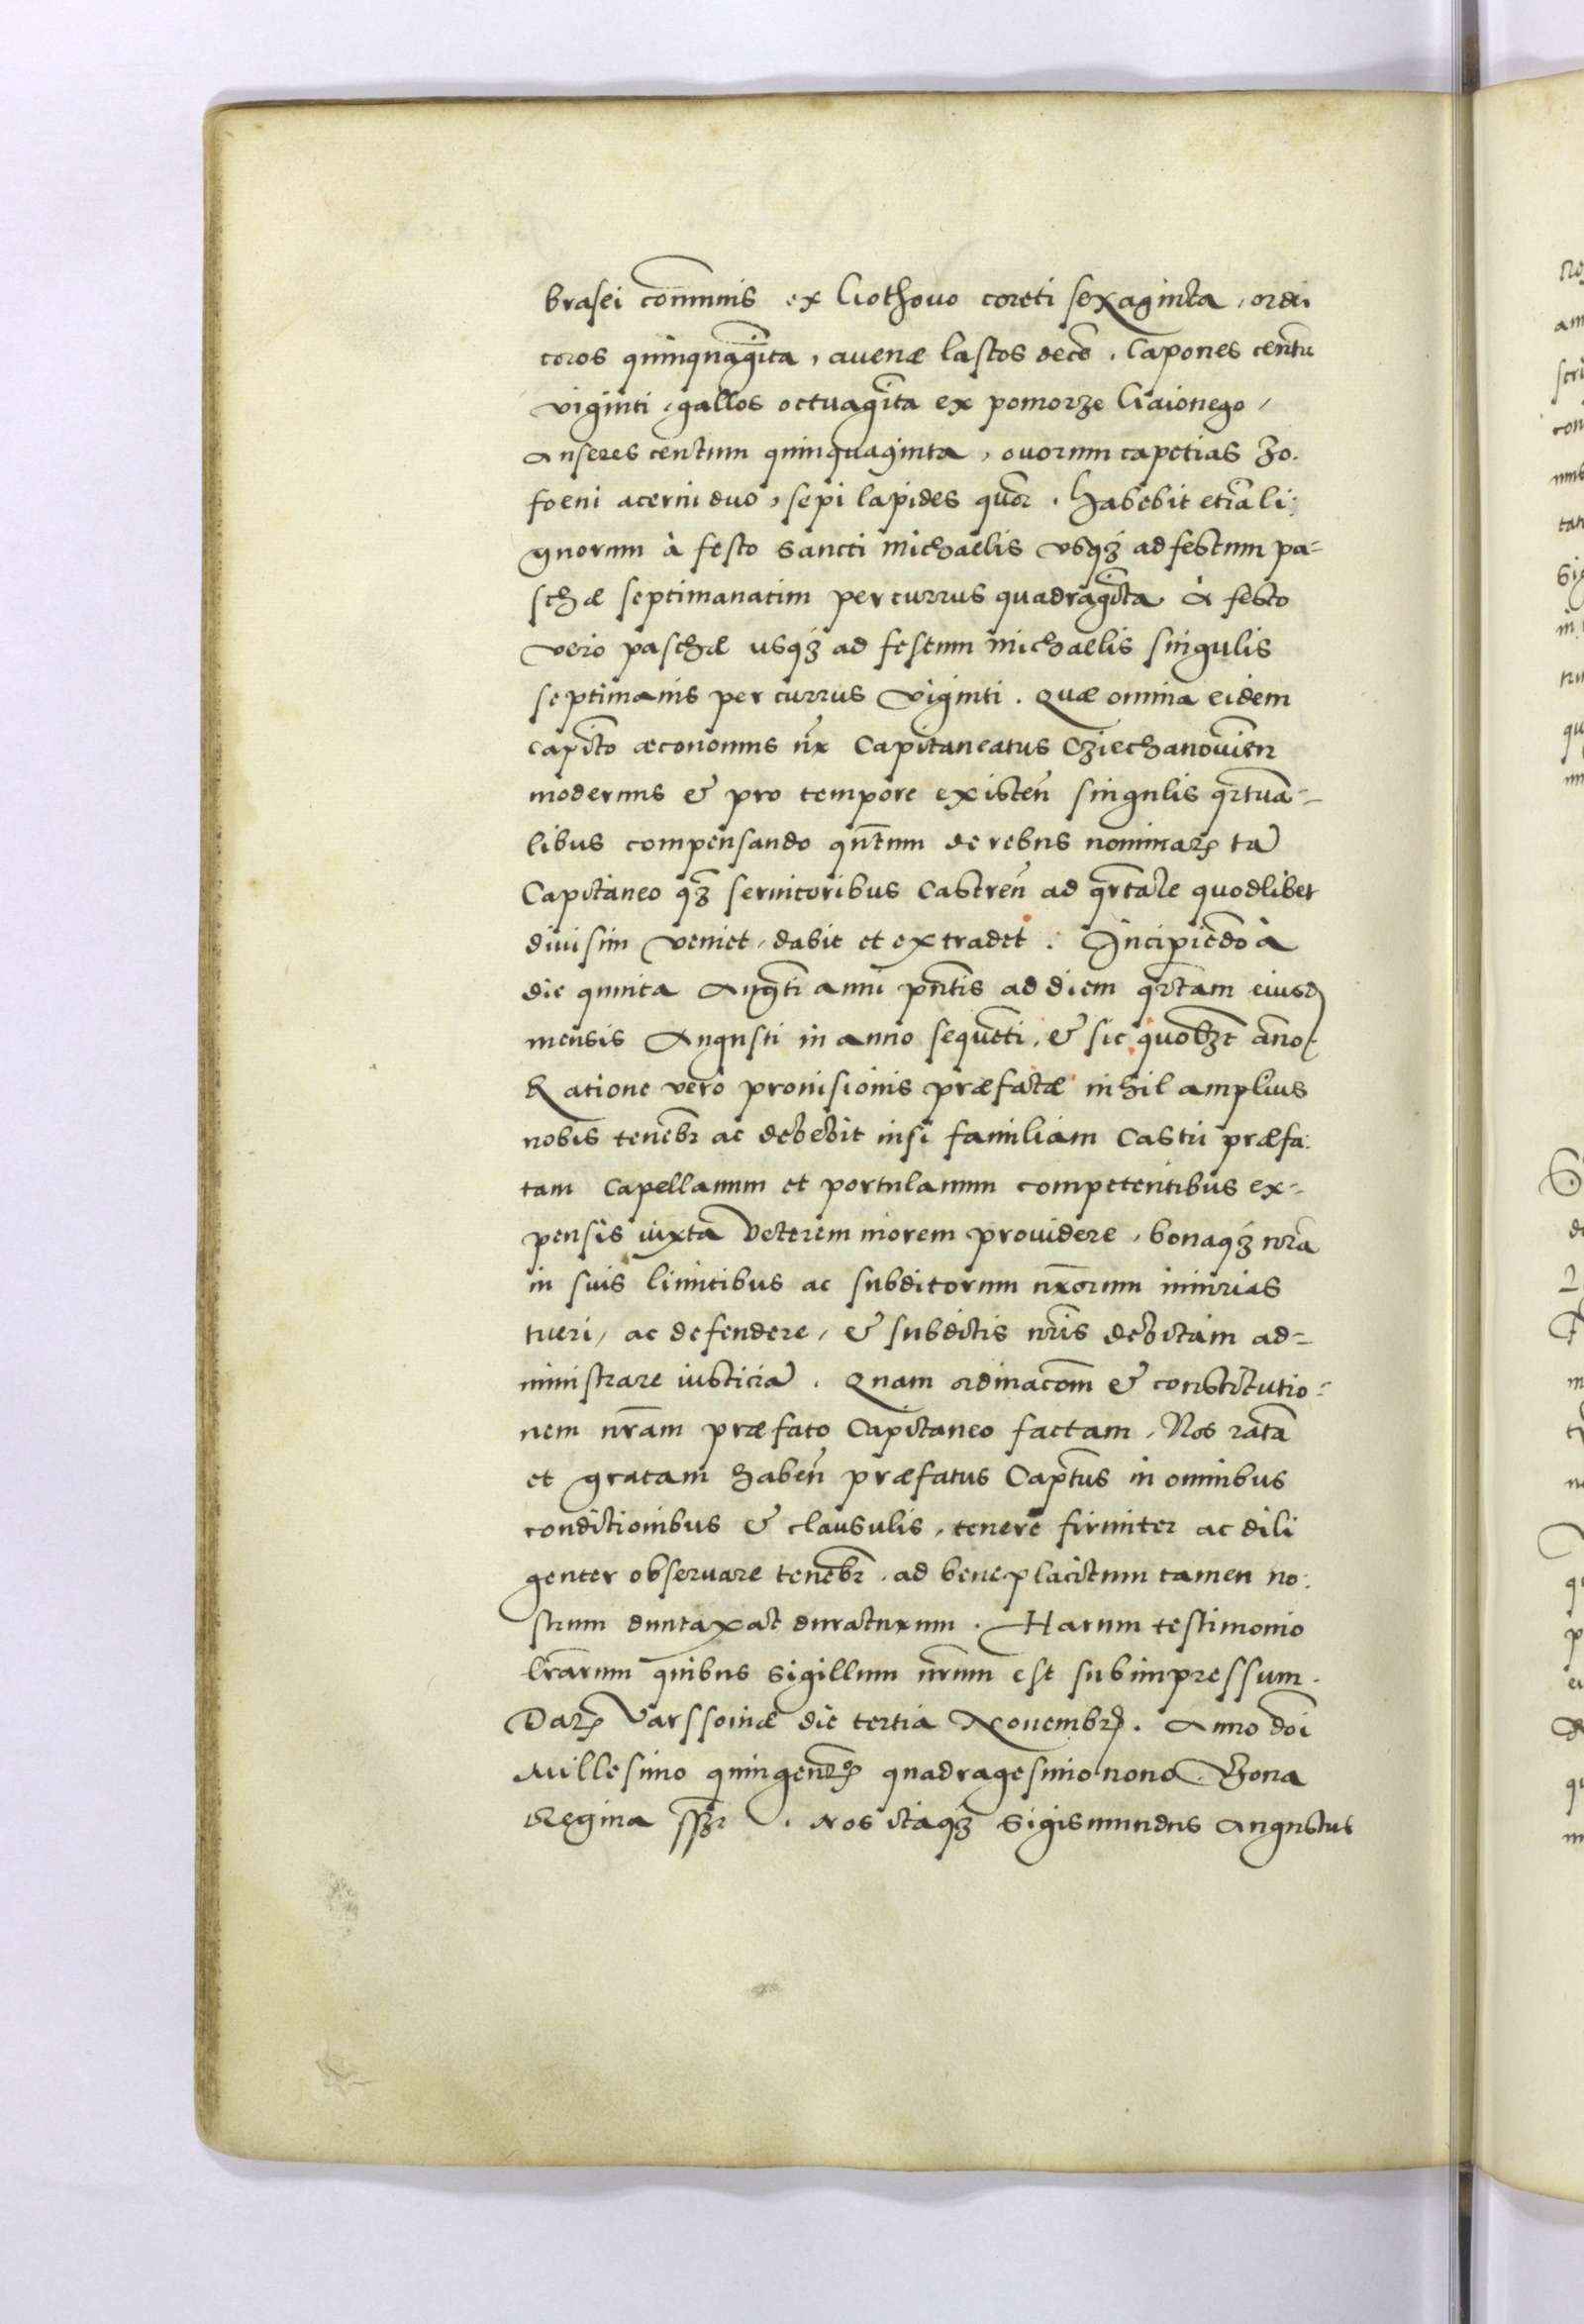 brasei com̃unis ex Gothouo coreti sexaginta, ordei
coros quinquagĩta, avenæ lastos decẽ. Capones centũ
viginti, gallos octuagĩta ex pomorze Gaionego,
Anseres centum quinquaginta, ouorum capetias 30.
foeni acerui duo, sepi lapides quor. Habebit etiã li:
gnorum à festo Sancti Michaelis vsqȝ ad festum pa=
schæ septimanatim per currus quadragĩta. A festo
vero paschæ usqȝ ad festum Michaelis singulis
septimanis per currus viginti. Quæ omnia eidem
capito œconomus nr̃ Capitaneatus Cziechanovien̄
modernus & pro tempore existen̄ singulis qrtua=
libus compensando qñtum de rebus nominaꝝ tã
Capitaneo qȝ seruitoribus Castren̄ ad qrtale quodlibet
diuisim veniet, dabit et extradet. Incipiẽdo à
die quinta Augti anni pñtis ad diem qrtam eiusd
mensis Augusti in anno sequẽti, & sic quolȝt año.
Ratione vero prouisionis præfatæ nihil amplius
nobis tenebr ac debebit nisi familiam Castri præfa:
tam Capellanum et portulanum competentibus ex=
pensis iuxta veterem morem prouidere, bonaqȝ nr̃a
in suis limitibus ac subditorum nr̃orum iniurias
tueri, ac defendere, & subditis nr̃is debitam ad=
ministrare iusticiã. Quam ordinacõm & constitutio=
nem nr̃am præfato Capitaneo factam, Nos ratã
et gratam haben̄ præfatus Captus in omnibus
conditionibus & clausulis, tenere firmiter ac dili
genter obseruare tenebr, ad beneplacitum tamen no:
strum duntaxat duraturum. Harum testimonio
lr̃arum quibus sigillum nr̃um est subimpressum.
Daꝝ Varssouiæ die tertia Nouembr. Anno dõi
Millesimo quingenteº quadragesimo nono. Bona
Regina sspt. Nos itaqȝ Sigismundus Augustus